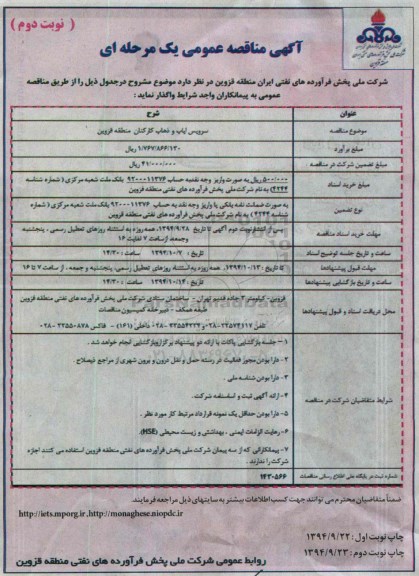 ( نوبت دوم )
آگهی مناقصه عمومی یک مرحله ای
شرکت ملی پخش فرآورده های نفتی ایران منطقه قزوین در نظر دارد موضوع مشروح درجدول ذیل را از طریق مناقصه
عمومی به پیمانکاران واجد شرایط واگذار نماید :
عنوان
شرح
موضوع مناقصه
سرویس ایاب و ذهاب کارکنان منطقه قزوین
مبلغ برآورد
مبلغ تضمین شرکت در مناقصه
۴۱/۰۰۰/۰۰۰ ریال
مبلغ خرید اسناد
۵۰۰/۰۰۰ ریال به صورت واریز وجه نقدبه حساب ۹۲۰۰۰۱۱۳۷۶ بانک ملت شعبه مرکزی ( شماره شناسه
۴۲۴۴) به نام شرکت ملی پخش فرآورده های نفتی منطقه قزوین
نوع تضمین
به صورت ضمانت نامه بانکی یا واریز وجه نقد به حساب ۹۲۰۰۰۱۱۳۷۶ بانک ملت شعبه مرکزی ( شماره
شناسه ۴۲۴۴ ) به نام شرکت ملی پخش فرآورده های نفتی منطقه قزوین
مهلت خرید اسناد مناقصه
پس از انتشار نوبت دوم آگهی تا تاریخ ۱۳۹۴/۹/۲۸. همه روزه به استثناء روزهای تعطیل رسمی ، پنجشنبه
وجمعه، ازساعت ۷ لغایت ۱۶
ساعت و تاریخ جلسه توضیح اسناد
تاریخ ۱۳۹۴/۱۰/۷ ساعت : ۱۴/۳۰
مهلت قبول پیشنهادها
تا تاریخ : ۱۳۹۴/۱۰/۱۳. همه روزه به استثناء روزهای تعطیل رسمی، پنجشنبه و جمعه ، از ساعت ۷ تا ۱۶
ساعت و تاریخ بازگشایی پیشنهادها
تاریخ ۱۳۹۴/۱۰/۱۴ ساعت : ۱۴/۳۰
محل دریافت اسناد و قبول پیشنهادها
قزوین- کیلومتر ۲ جاده قدیم تهران - ساختمان ستادی شرکت ملی پخش فرآورده های نفتی منطقه قزوین
طبقه همکف - دبیرخانه کمیسیون مناقصات
شرایط متقاضیان شرکت در مناقصه
۱- جلسه بازگشایی پاکات با ارائه دو پیشنهاد برگزاروبازگشایی انجام خواهد شد .
۲- دارا بودن مجوز فعالیت در رسته حمل و نقل درون و برون شهری از مراجع ذیصلاح .
۳- دارا بودن شناسه ملی .
۴- ارائه آگهی ثبت و اساسنامه شرکت.
۵- دارا بودن حداقل یک نمونه قرارداد مرتبط کار مورد نظر .
۶- رعایت الزامات ایمنی ، بهداشتی و زیست محیطی (HSE)
۷- پیمانکارانی که از سه پیمان شرکت ملی پخش فرآورده های نفتی منطقه قزوین استفاده می کنند اجازه
شرکت را ندارند .
شماره ثبت در پایگاه ملی اطلاع رسانی مناقصات
۱۴۳۰۵۶۶
ضمناً متقاضیان محترم می توانند جهت کسب اطلاعات بیشتر به سایتهای ذیل مراجعه فرمایند.
http://iets.mporg.ir ,http://monaghese.niopdc.ir
چاپ نوبت اول : ۱۳۹۴/۹/۲۲
چاپ نوبت دوم : ۱۳۹۴/۹/۲۳
روابط عمومی شرکت ملی پخش فرآورده های نفتی منطقه قزوین